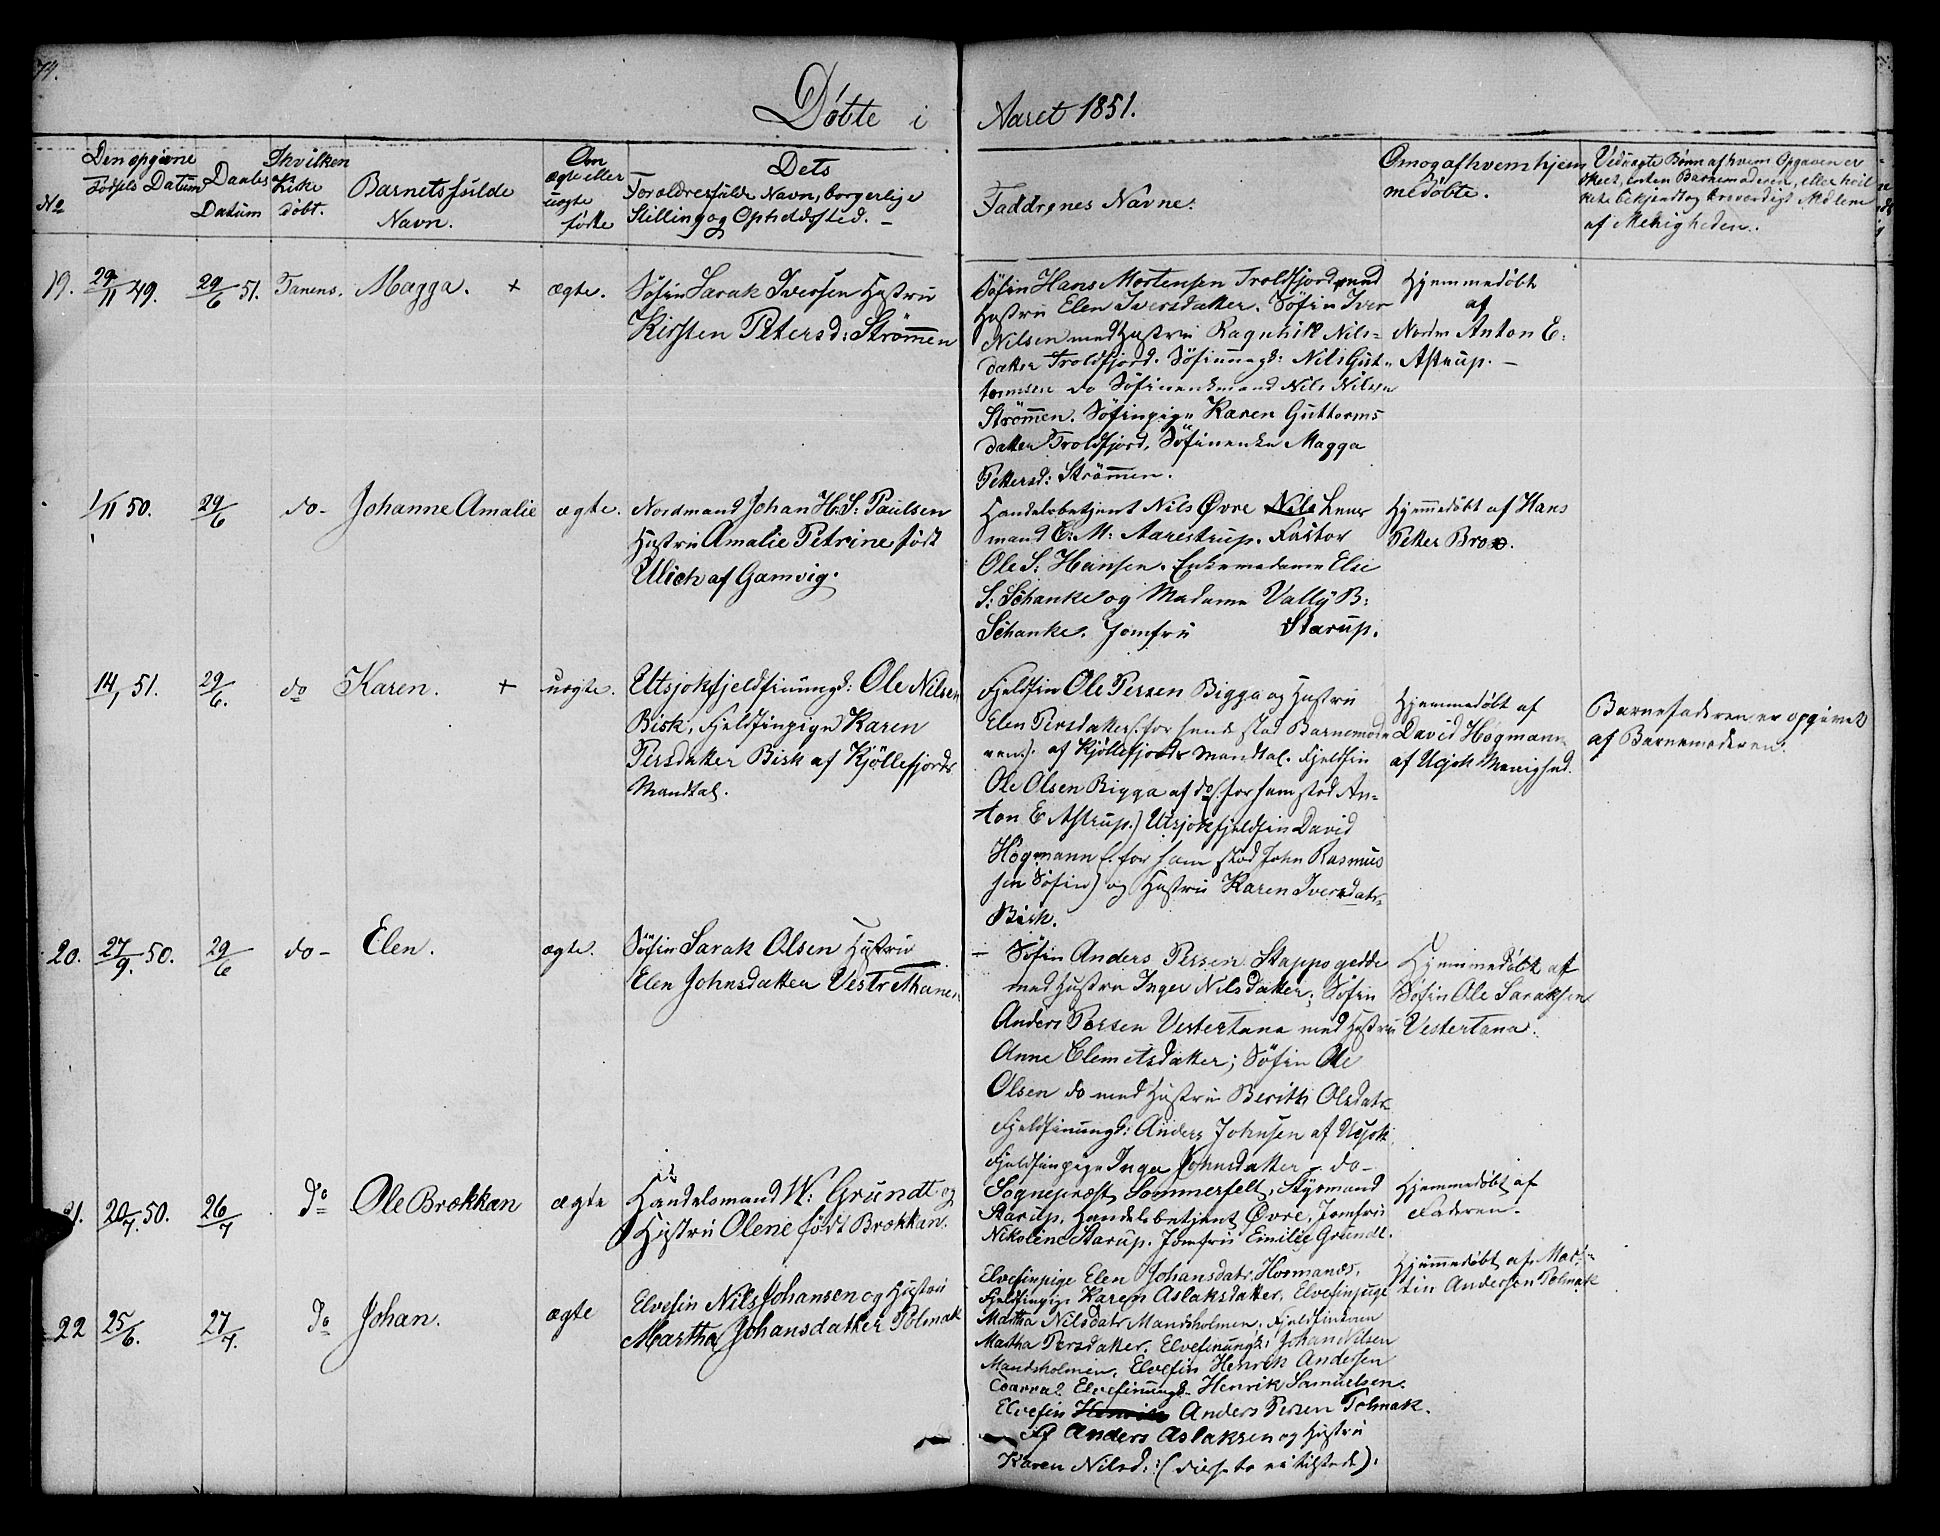 74.
Döbte i Aaret 1851.
No
Den opgivne Fødsels Datum
Daabs Datum
I hvilken Kirke døbt.
Barnets fulde Navn.
Om ægte eller uægte födte
Dets Forældres fulde Navn, borgerlige Stilling og Opholdssted. -
Faddrenes Navne.
Om og af hvem hjemmedöbte.
Ved uægte Børn af hvem Opgaven er skeet, enten Barnemoderen, eller hvilket bekjendt og troværdigt Medlem af Menigheden.
19. 29/11 49. 29/6 51. Tanens. Magga. + ægte.
Søfin Sarak Iversen Hustru
Kirsten Petersd: Strømmen
Søfin Hans Mortensen Troldfjord med
Hustru Elen Iversdatter. Søfin Iver
Nilsen med Hustru Ragnhild Nils-
datter Troldfjord. Søfinungk: Nils Gut-
tormsen do Søfinenkemand Nils Nilsen
Strømmen. Søfinpige Karen Guttorms
datter Troldfjord, Søfinenke Magga
Pettersd: Strömmen.
Hjemmedöbt
af
Nordm Anton E.
Astrup. -
1/11 50. 29/6 do- Johanne Amalie ægte.
Nordmand Johan H. S. Paulsen
Hustru Amalie Petrine født
Ulich af Gamvig.
Handelsbetjent Nils Øvre Nils Lens
mand C. M. Aarestrup. Pastor
Ole S. Hansen. Enkemadame Else
S: Schanke og Madame Vally B:
Schanke. Jomfru Starup.
Hjemmedöbt af Hans
Petter Broe.
14/1 51. 29/6. do Karen. + uægte.
Utsjok fjeldfinungk: Ole Nilsen
Bisk, Fjeldfinpige Karen
Persdatter Bisk af Kjöllefjords
Mandtal.
Fjeldfin Ole Persen Bigga og Hustru
Elen Persdatter (for hende stod Barnemode
ren). af Kjöllefjords Mandtal. Fjeldfin
Ole Olsen Bigga af do (for ham stod An-
ton E Astrup.) Utsjok fjeldfin David
Högmann (for ham stod John Rasmus
sen Søfin) og Hustru Karen Iversdatr
Bisk.
Hjemmedöbt af
David Högmann
af Ucjok Menighed.
Barnefaderen er opgivet
af Barnemoderen.
20. 27/9. 50. 29/6 do- Elen. ægte.
Søfin Sarak Olsen Hustru
Elen Johnsdatter Vestre Thanen
- Søfin Anders Persen Stappogedde
med Hustru Inger Nilsdatter; Søfin
Anders Persen Vestertana med Hustru
Anne Clemetsdatter; Søfin Ole
Olsen do med Hustru Berith Olsdatr
Fjeldfinungk: Anders Johnsen af Ucjok
Fjeldfinpige Inger Johnsdatter - do-
Hjemmedöbt af
Søfin Ole Saraksen
Vestertana.
21. 20/7. 50. 26/7 do Ole Brækkan ægte
Handelsmand W: Grundt og
Hustru Olene født Brækkan.
Sognepræst Sommerfelt, Styrmand
Starup, Handelsbetjent Øvre, Jomfru
Nikoline Starup. Jomfru Emilie Grundt.
Hjemmedöbt af
Faderen.
22 25/6. 27/7. do Johan. ægte
Elvefin Nils Johansen og Hustru
Martha Johansdatter Polmak
Elvefinpige Elen Johansdatr Hormanæs.
Fjeldfinpige Karen Aslaksdatter. Elvefinpige
Martha Nilsdatr Mandsholmen. Fjeldfin
Martha Persdatter. Elvefinungk: Johan Nilsen
Mandsholmen. Elvefin Henrik Andersen
Elvefinungk. Henrik Samuelsen.
Elvefin Henrik Anders Persen Polmak.
Ff Anders Aslaksen og Hustru
Karen Nilsd: (disse to ei tilstede).
Hjemmedöbt af Mor-
tin Andersen Polmak